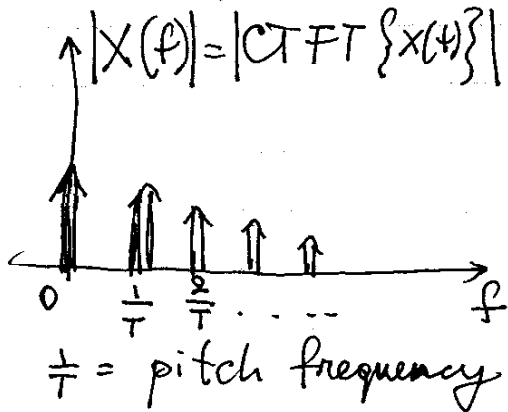 |X(f)| = |CTFT {x(t)}|
0 1/T 2/T . . . . --
f
1/T = pitch frequency